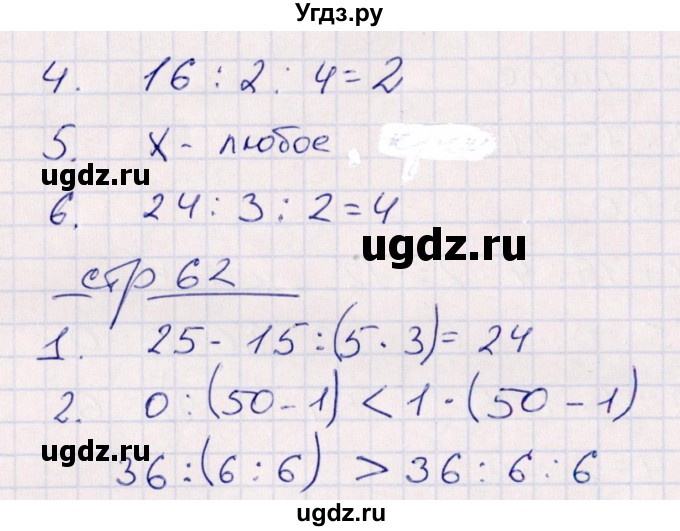 Угдз.ру
4. 16 : 2 : 4 = 2
5. x - любое
ugdz.ru
6. 24 : 3 : 2 = 4
ugdz.ru
стр 62
1. 25 - 15 : (5 · 3) = 24
2. 0 : (50 - 1) < 1 · (50 - 1)
ugdz.ru
36 : (6 : 6) > 36 : 6 : 6